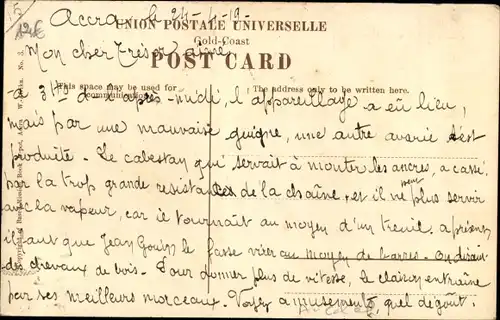 15
12€
Accra, le 24-4-19-
UNION POSTALE UNIVERSELLE
Gold-Coast
POST CARD
This space may be used for communication.
The address only to be written here.
Mon cher trésor aimé,
à 3H de l'après-midi, l'appareillage a eu lieu,
mais par une mauvaise guigne, une autre avarie s'est
produite. Le cabestan qui servait à monter les ancres, a cassé
par la trop grande résistance de la chaîne, et il ne peut plus servir
avec la vapeur, car il tournait au moyen d'un treuil. à présent
il faut que Jean Gouin le fasse virer au moyen de barres. On dirait
des chevaux de bois. Pour donner plus de vitesse, le clairon entraîne
par ses meilleurs morceaux. Voyez amusements, quel dégoût!